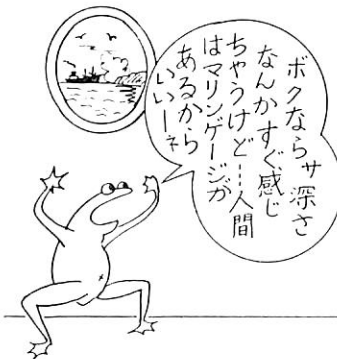 ボクならサ深さ
なんかすぐ感じ
ちゃうけど…人間
はマリンゲージが
あるから
いいーネ